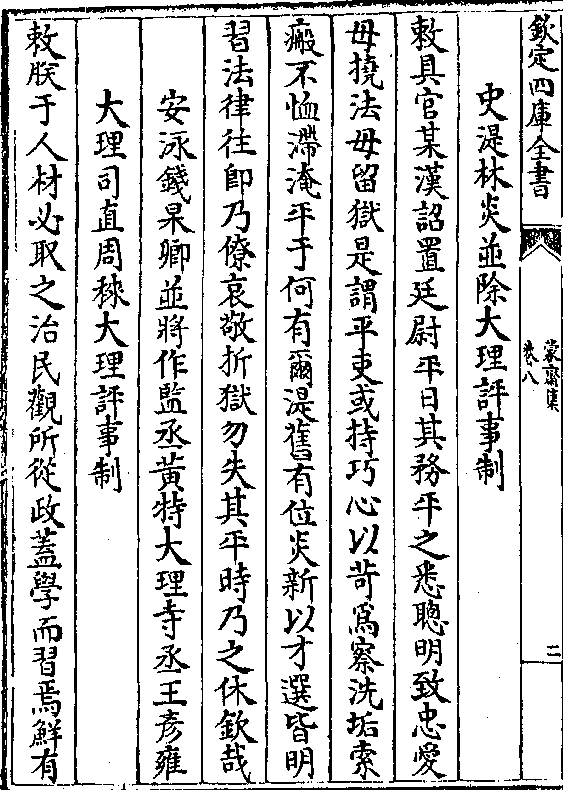 欽定四庫全書
蒙齋集
卷八
二
史湜林炎並除大理評事制
敕具官某漢詔置廷尉平日其務平之悉聰明致忠愛
毋撓法毋留獄是謂平吏或持巧心以苛爲察洗垢索
瘢不恤滯淹平于何有爾湜舊有位炎新以才選皆明
習法律往卽乃僚哀敬折獄勿失其平時乃之休欽哉
安泳錢杲卿並將作監丞黃特大理寺丞王彥雍
大理司直周𥟖大理評事制
敕朕于人材必取之治民觀所從政蓋學而習焉鮮有